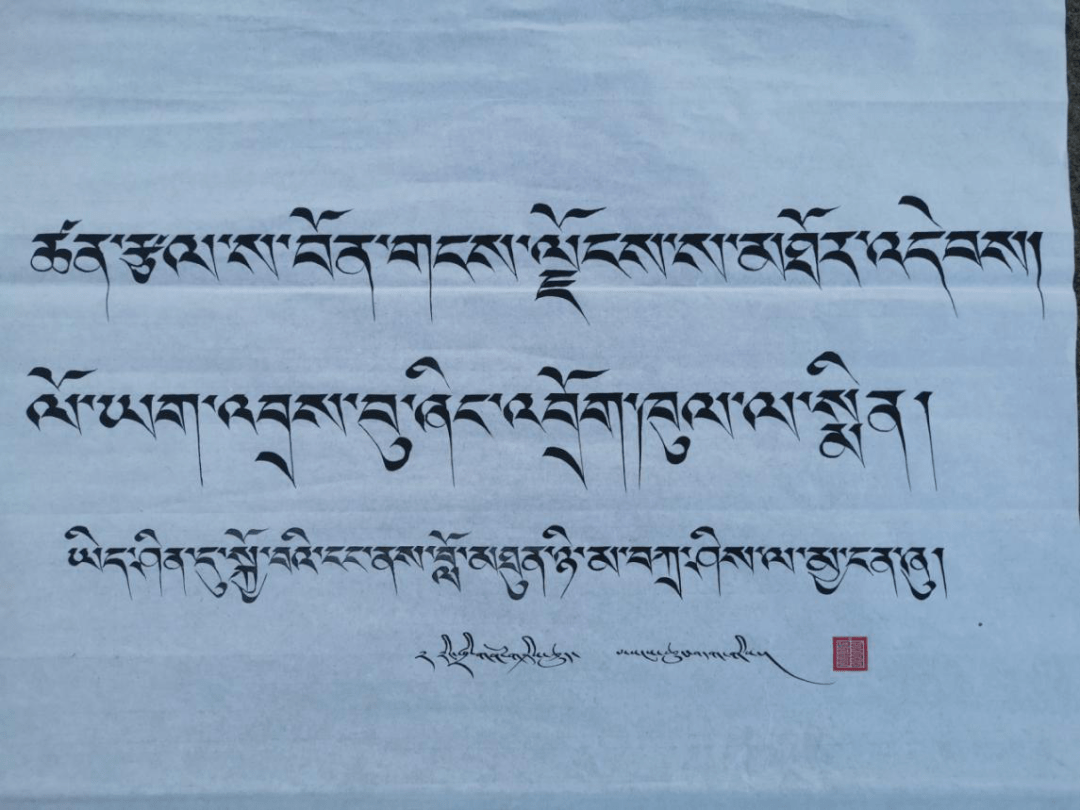 ཚན་རྩལ་ས་བོན་གངས་ལྗོངས་ས་མ་ཐོར་འདེབས།
ལོ་ཡག་འབྲས་བུ་ཞིང་འབྲོག་ཁུལ་ལ་སྨིན།
ཡིད་ཤིན་ཏུ་སྐྱོ་བའི་ངང་ནས་བློ་མཐུན་ཉི་མ་བཀྲ་ཤིས་ལ་མྱ་ངན་ཞུ།